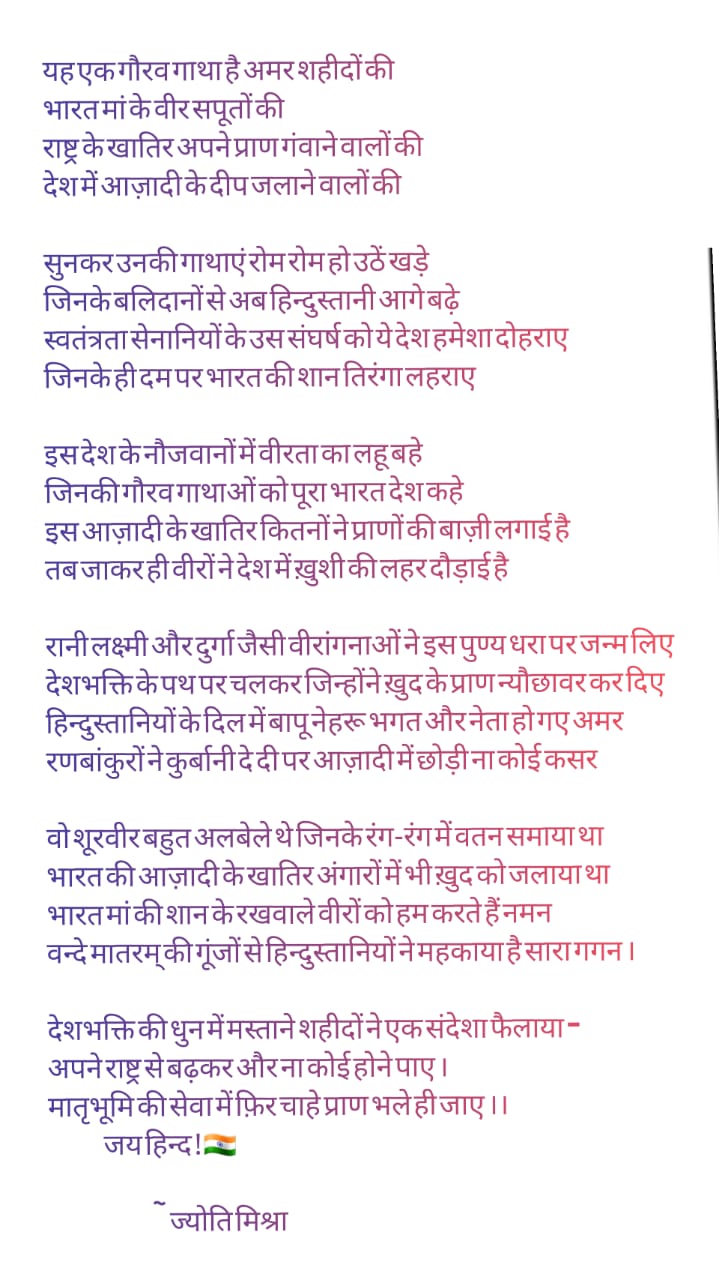 यह एक गौरव गाथा है अमर शहीदों की
भारत मां के वीर सपूतों की
राष्ट्र के खातिर अपने प्राण गंवाने वालों की
देश में आज़ादी के दीप जलाने वालों की
सुनकर उनकी गाथाएं रोम रोम हो उठें खड़े
जिनके बलिदानों से अब हिन्दुस्तानी आगे बढ़े
स्वतंत्रता सेनानियों के उस संघर्ष को ये देश हमेशा दोहराए
जिनके ही दम पर भारत की शान तिरंगा लहराए
इस देश के नौजवानों में वीरता का लहू बहे
जिनकी गौरव गाथाओं को पूरा भारत देश कहे
इस आज़ादी के खातिर कितनों ने प्राणों की बाज़ी लगाई है
तब जाकर ही वीरों ने देश में ख़ुशी की लहर दौड़ाई है
रानी लक्ष्मी और दुर्गा जैसी वीरांगनाओं ने इस पुण्य धरा पर जन्म लिए
देशभक्ति के पथ पर चलकर जिन्होंने ख़ुद के प्राण न्यौछावर कर दिए
हिन्दुस्तानियों के दिल में बापू नेहरू भगत और नेता हो गए अमर
रणबांकुरों ने कुर्बानी दे दी पर आज़ादी में छोड़ी ना कोई कसर
वो शूरवीर बहुत अलबेले थे जिनके रंग-रंग में वतन समाया था
भारत की आज़ादी के खातिर अंगारों में भी ख़ुद को जलाया था
भारत मां की शान के रखवाले वीरों को हम करते हैं नमन
वन्दे मातरम् की गूंजों से हिन्दुस्तानियों ने महकाया है सारा गगन।
देशभक्ति की धुन में मस्ताने शहीदों ने एक संदेशा फैलाया -
अपने राष्ट्र से बढ़कर और ना कोई होने पाए।
मातृभूमि की सेवा में फ़िर चाहे प्राण भले ही जाए।।
जय हिन्द!🇮🇳
~ ज्योति मिश्रा